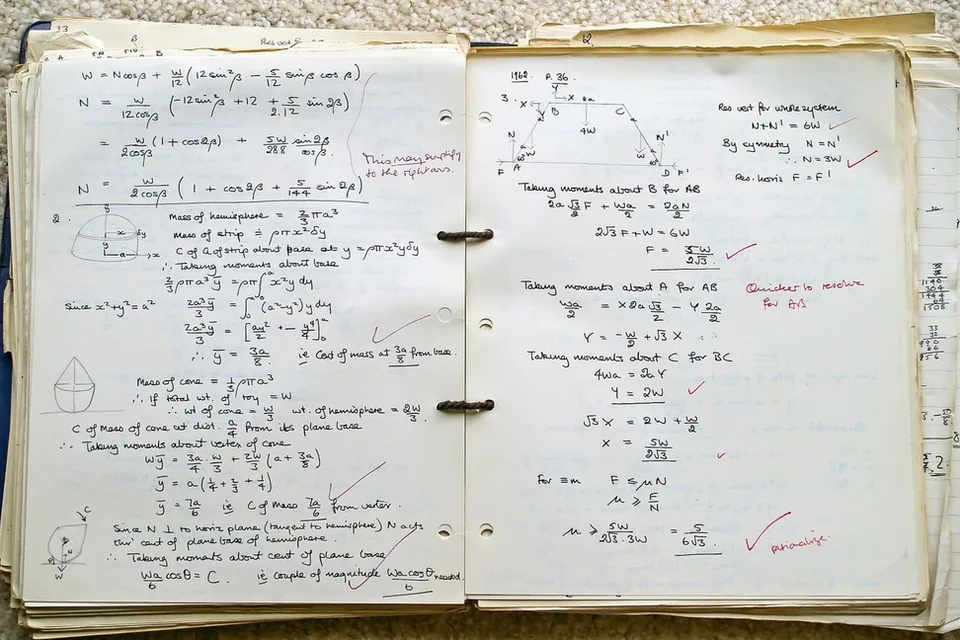 33
W = Ncosβ + W/12 (12 sin²β − 5/12 sinβ cosβ)
N = W/12cosβ (−12sin²β + 12 + 5/2.12 sin 2β)
= W/2cosβ (1 + cos2β) + 5W/288 sin2β/cosβ.
This may simplify
to the right ans.
N = W/2cosβ (1 + cos2β + 5/144 sin 2β)
2.
Mass of hemisphere = 2/3 πa³
Mass of strip ≑ ρπx²δy
C of G of strip about base at y = ρπx²yδy
∴ Taking moments about base
2/3 ρπa³ȳ = ρπ∫₀ᵃ x²y dy
Since x²+y² = a² 2a³ȳ/3 = ∫₀ᵃ (a²−y²) y dy
2a³ȳ/3 = [ay²/2 + − y⁴/4]₀ᵃ
∴ ȳ = 3a/8 ie C of mass at 3a/8 from base.
Mass of cone = 1/3 ρπa³
∴ If total wt. of toy = W
∴ wt of cone = W/3 wt. of hemisphere = 2W/3.
C of Mass of cone at dist. a/4 from its plane base
∴ Taking moments about vertex of cone
Wȳ = 3a/4 . W/3 + 2W/3 (a + 3a/8)
ȳ = a(1/4 + 2/3 + 1/4)
ȳ = 7a/6 ie C of Mass 7a/6 from vertex.
C
N
W
Since N ⊥ to horiz plane (tangent to hemisphere) N acts
thro' cent of plane base of hemisphere.
∴ Taking moments about cent of plane base
Wa/6 cosθ = C. ie couple of magnitude Wa cosθ/6 needed.
12.
1962. P.36
3.
Y
X X 2a
B C
4W
N W W N'
F A D F'
Res vert for whole system
N+N' = 6W
By symmetry N = N'
∴ N = 3W
Res. horiz F = F'
Taking moments about B for AB
2a√3/2 F + Wa/2 = 2aN/2
2√3 F + W = 6W
F = 5W/2√3.
Taking moments about A for AB
Wa/2 = X 2a√3/2 − Y 2a/2
Quicker to resolve
for AB
Y = −W/2 + √3 X
Taking moments about C for BC
4Wa = 2aY
Y = 2W
√3 X = 2W + W/2
X = 5W/2√3
For ≡m F ≤ μN
μ ≥ F/N
μ ≥ 5W/2√3.3W = 5/6√3.
rationalize.